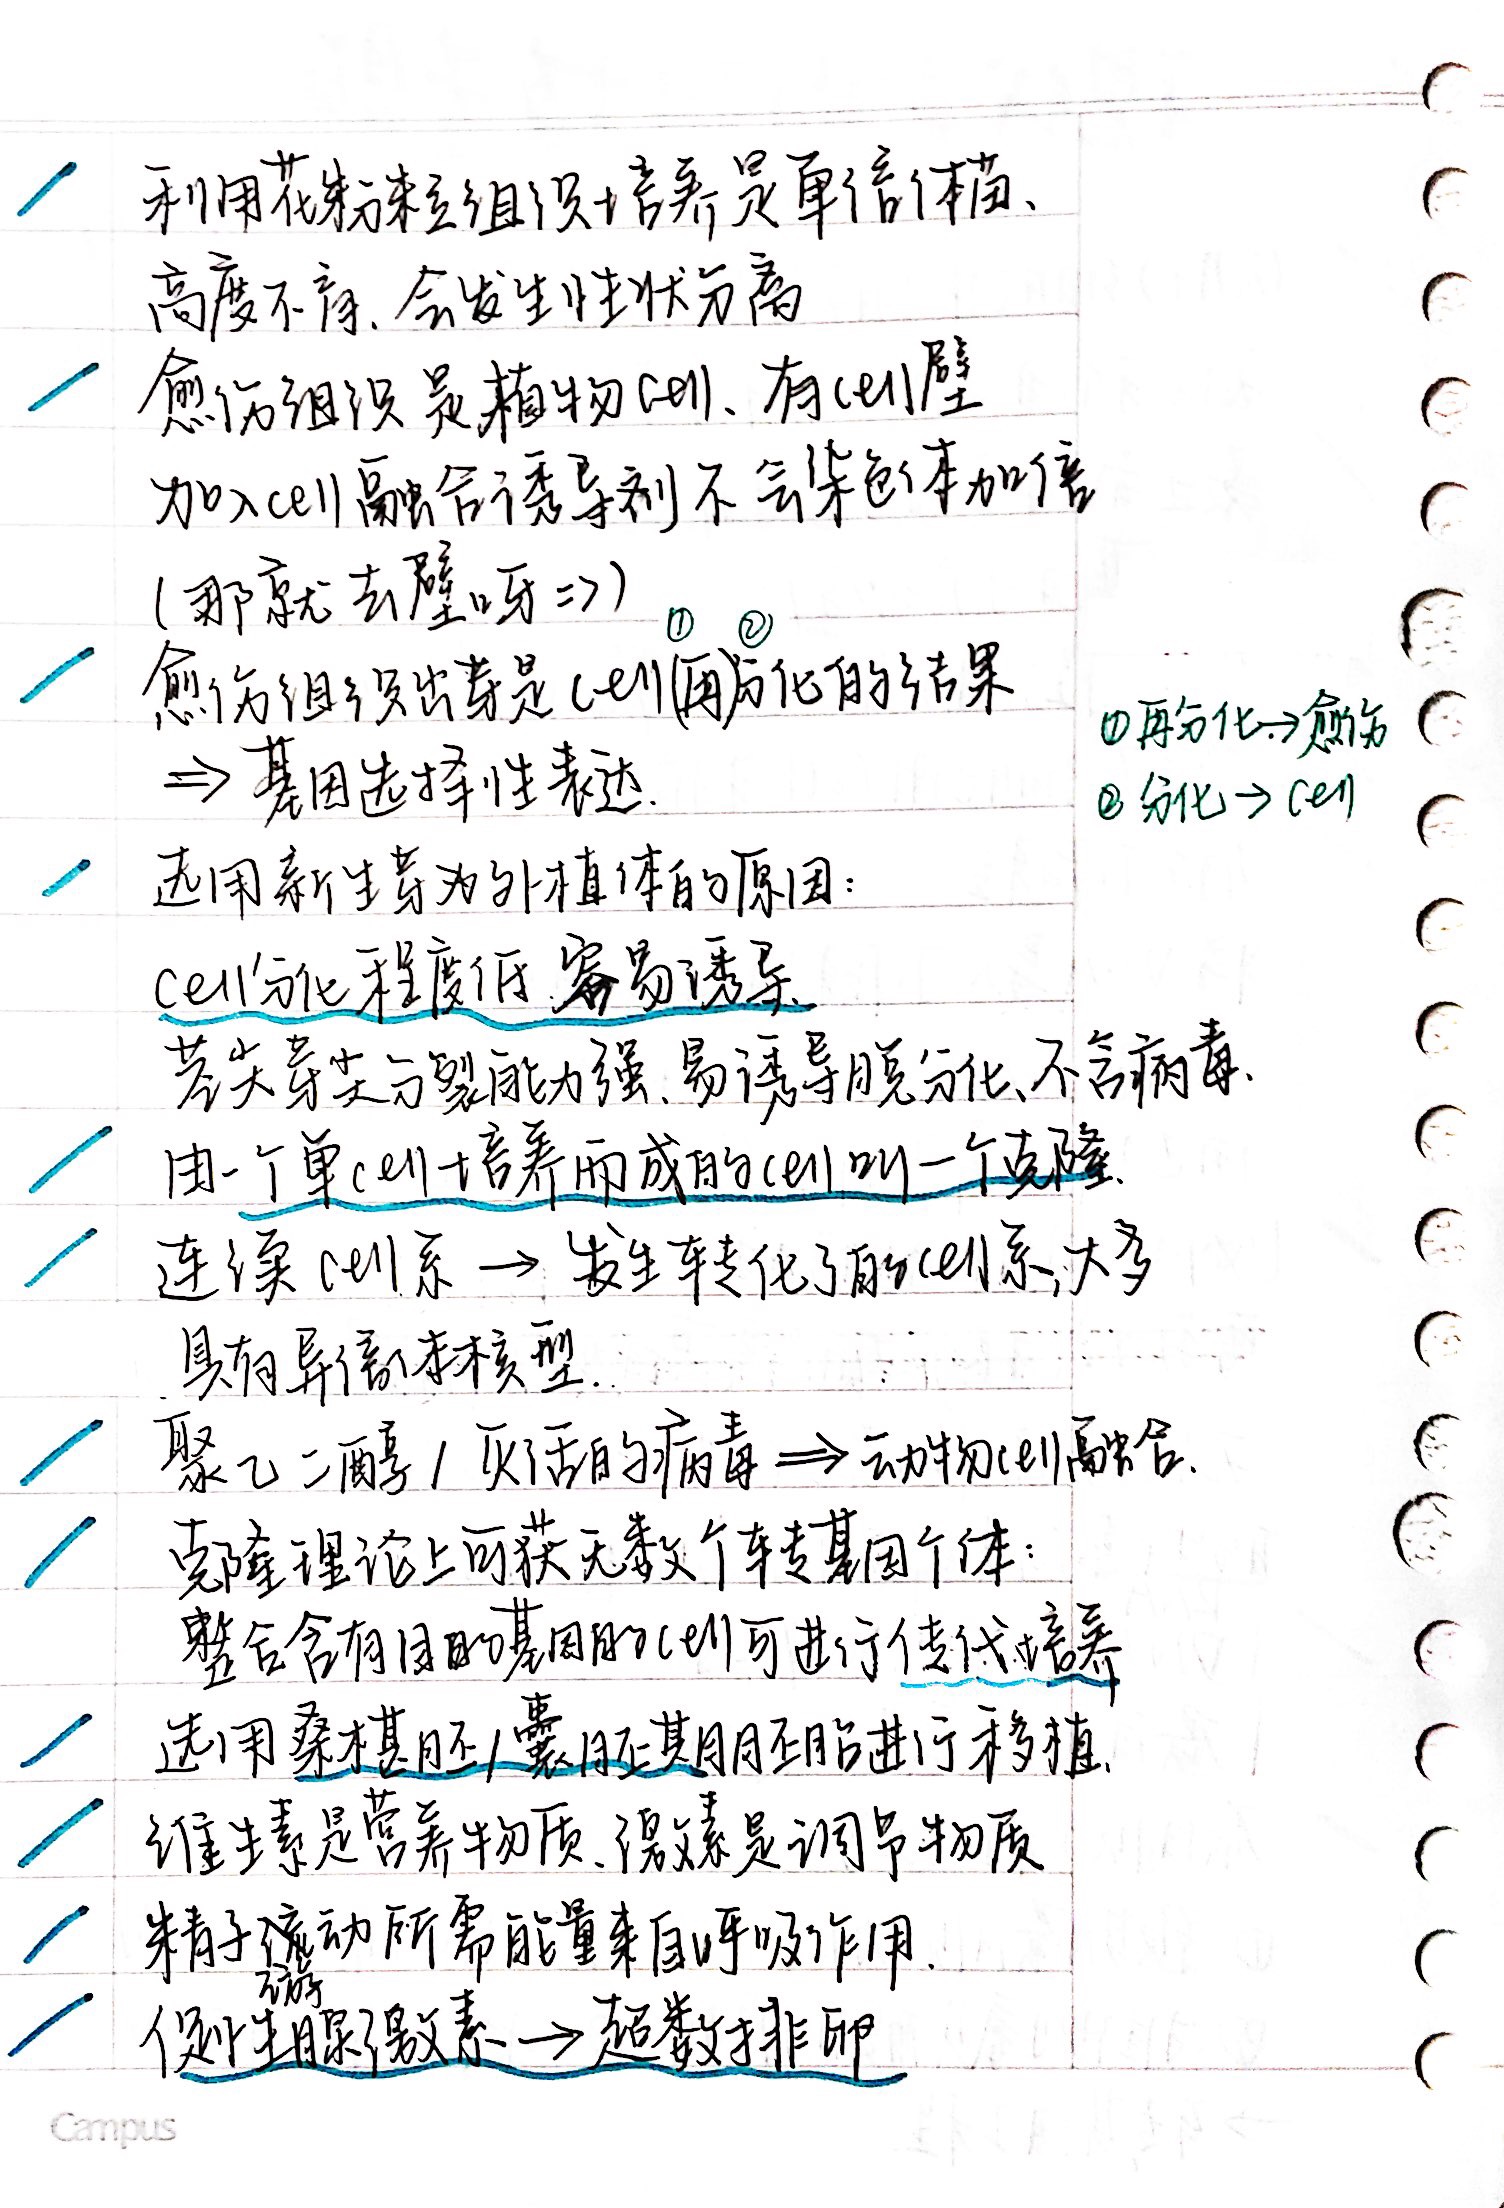 利用花粉粒组织培养是单倍体苗、
高度不育、会发生性状分离
愈伤组织是植物cell、有cell壁
加入cell融合诱导剂不会染色体加倍
(那就去壁呀=>)
① ②
愈伤组织出芽是cell(再)分化的结果
①再分化→愈伤
⇒基因选择性表达.
②分化→cell
选用新生芽为外植体的原因:
cell分化程度低.容易诱导、
茎尖芽尖分裂能力强、易诱导脱分化、不含病毒、
由一个单cell培养而成的cell叫一个克隆.
连续cell系→发生转化了的cell系,大多
具有异倍体核型.
聚乙二醇/灭活的病毒⇒动物cell融合.
克隆理论上可获无数个转基因个体:
整合含有目的基因的cell可进行传代培养
选用桑椹胚/囊胚期胚胎进行移植.
维生素是营养物质、激素是调节物质
精子流动所需能量来自呼吸作用.
游
促性腺激素→超数排卵
Campus